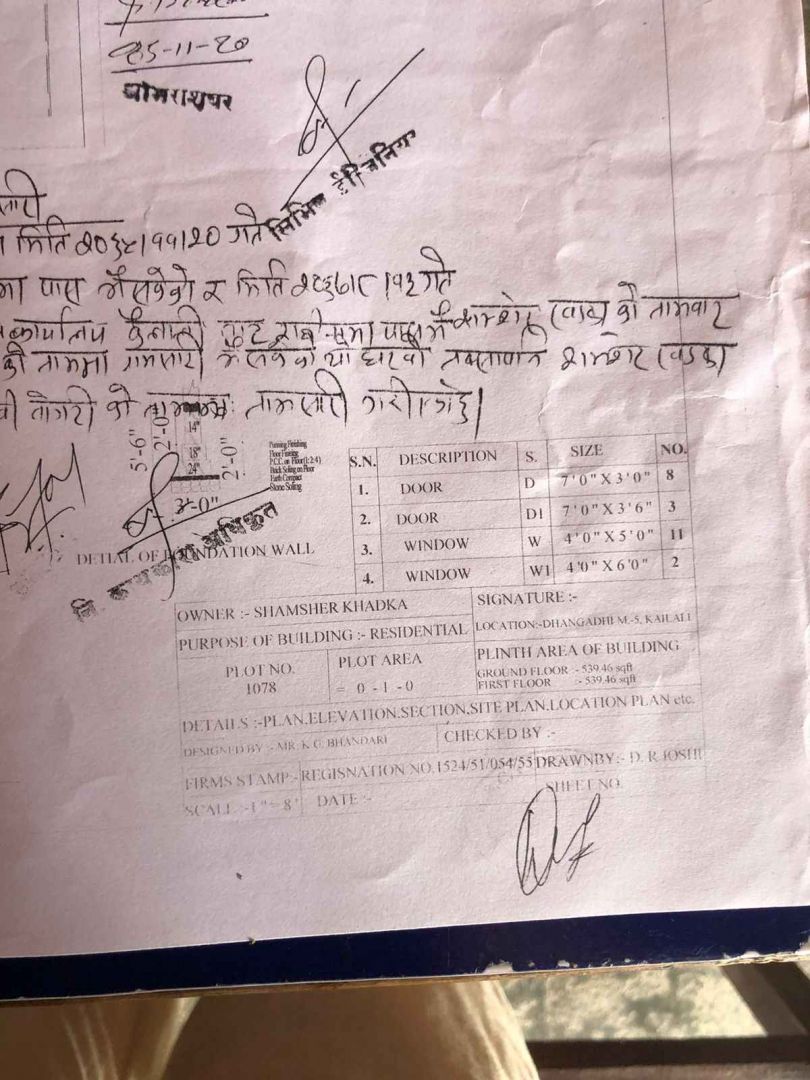 25-11-20
सिभिल ईन्जिनियर
मिति २०६५।११।२० गते
मा पास भैसकेको र मिति २०६७।८।१३ गते
कार्यालय कैलाली
को नाममा नामसारी भै सकेको यो घरको नक्सापनि शमशेर खड्का
नामसारी गरीएको छ।
14"
18"
24"
5'-6"
2'-0"
2'-0"
3'-0"
Punning Finishing
Floor Finising
P.C.C. on Floor(1:2:4)
Brick Soling on Floor
Earth Compact
Stone Soling
DETIAL OF FOUNDATION WALL
नि. कार्यकारी अधिकृत
S.N. DESCRIPTION S. SIZE NO.
1. DOOR D 7'0" X 3'0" 8
2. DOOR D1 7'0" X 3'6" 3
3. WINDOW W 4'0" X 5'0" 11
4. WINDOW W1 4'0" X 6'0" 2
OWNER :- SHAMSHER KHADKA
SIGNATURE :-
PURPOSE OF BUILDING :- RESIDENTIAL
LOCATION:-DHANGADHI M.-5, KAILALI
PLOT NO.
1078
PLOT AREA
= 0 -1 -0
PLINTH AREA OF BUILDING
GROUND FLOOR :- 539.46 sqft
FIRST FLOOR :- 539.46 sqft
DETAILS :-PLAN.ELEVATION.SECTION.SITE PLAN.LOCATION PLAN etc.
DESIGNED BY :- MR. K.C. BHANDARI
CHECKED BY :-
FIRMS STAMP:- REGISNATION NO.1524/51/054/55 DRAWNBY:- D. R JOSHI
SCALE :-1" = 8' DATE :- SHEET NO